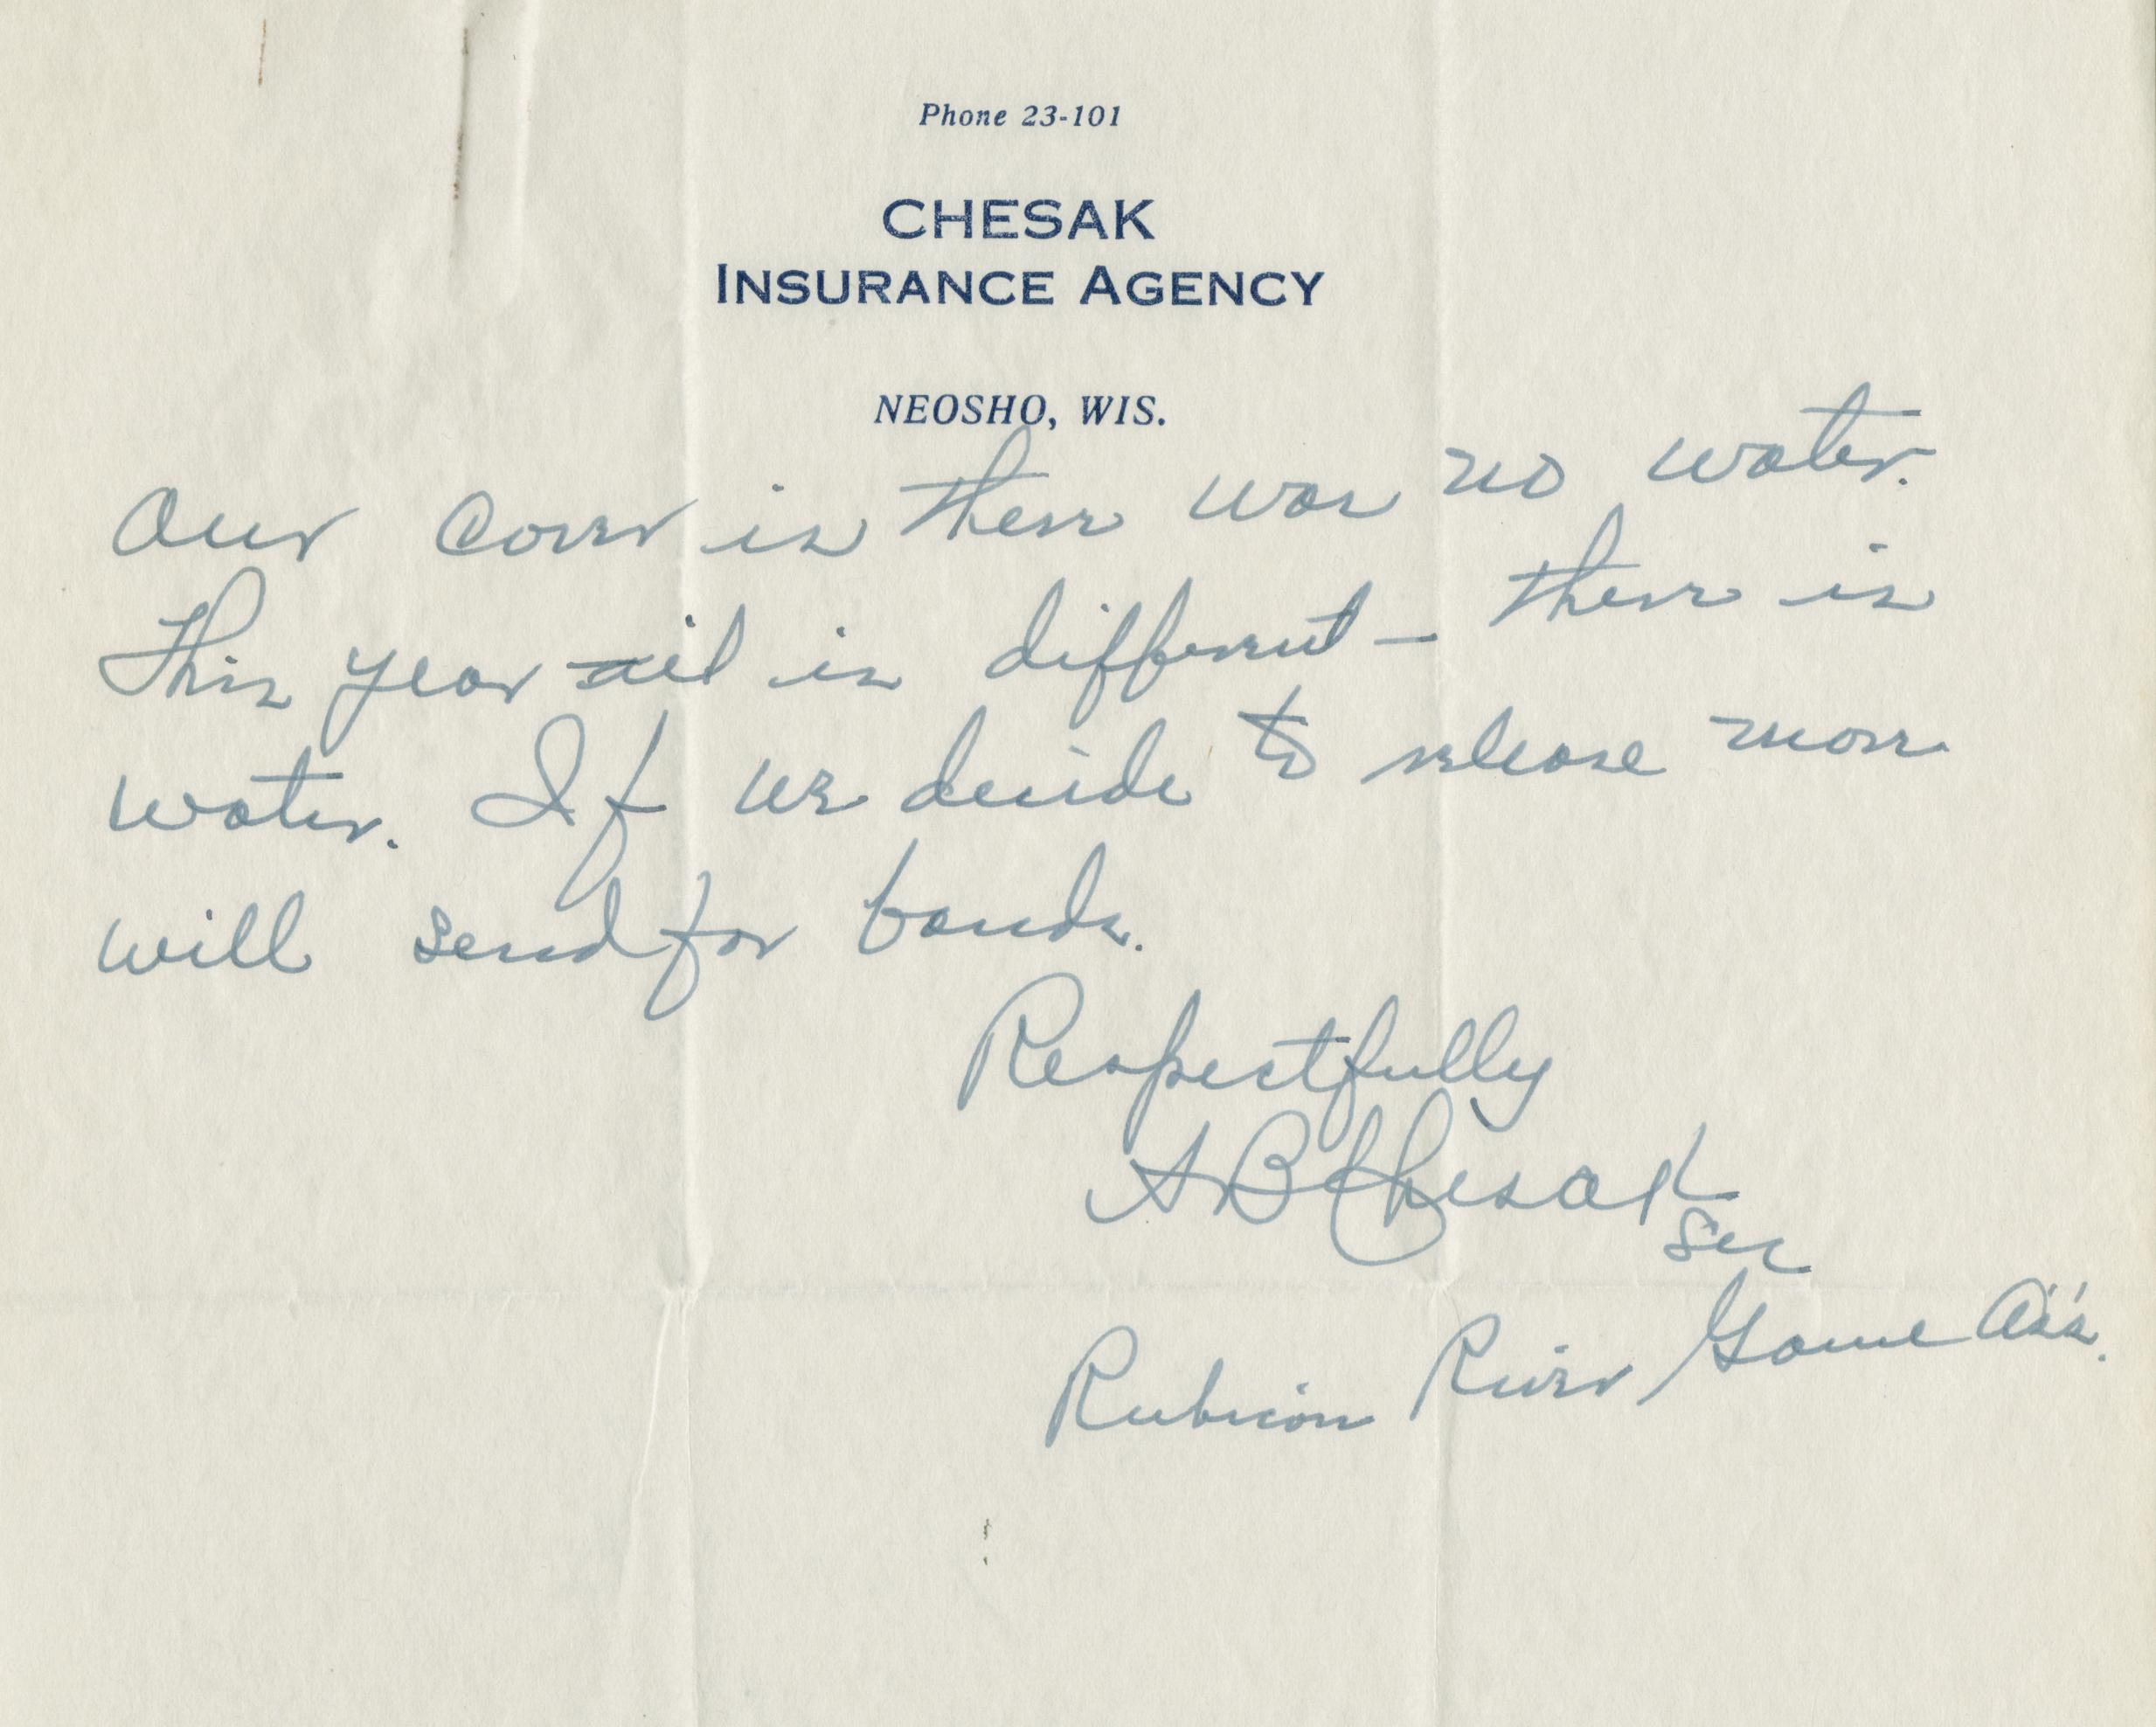 Phone 23-101
CHESAK
INSURANCE AGENCY
NEOSHO, WIS.
Our cover is there was no water.
This year it is different - there is
water. If we decide to release more
will send for bands.
Respectfully
A B Chesak
Sec
Rubicon River Game Ass.